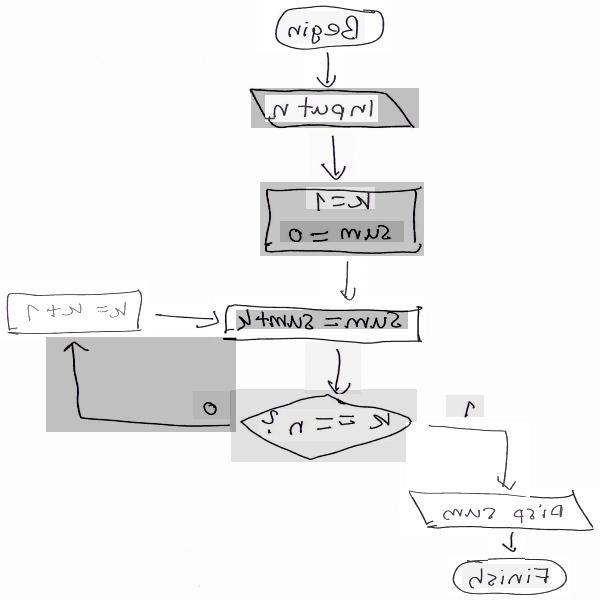 Begin
Input n
K=1
sum = 0
sum = sum+K
K= K+1
K == n ?
0
1
Disp sum
Finish